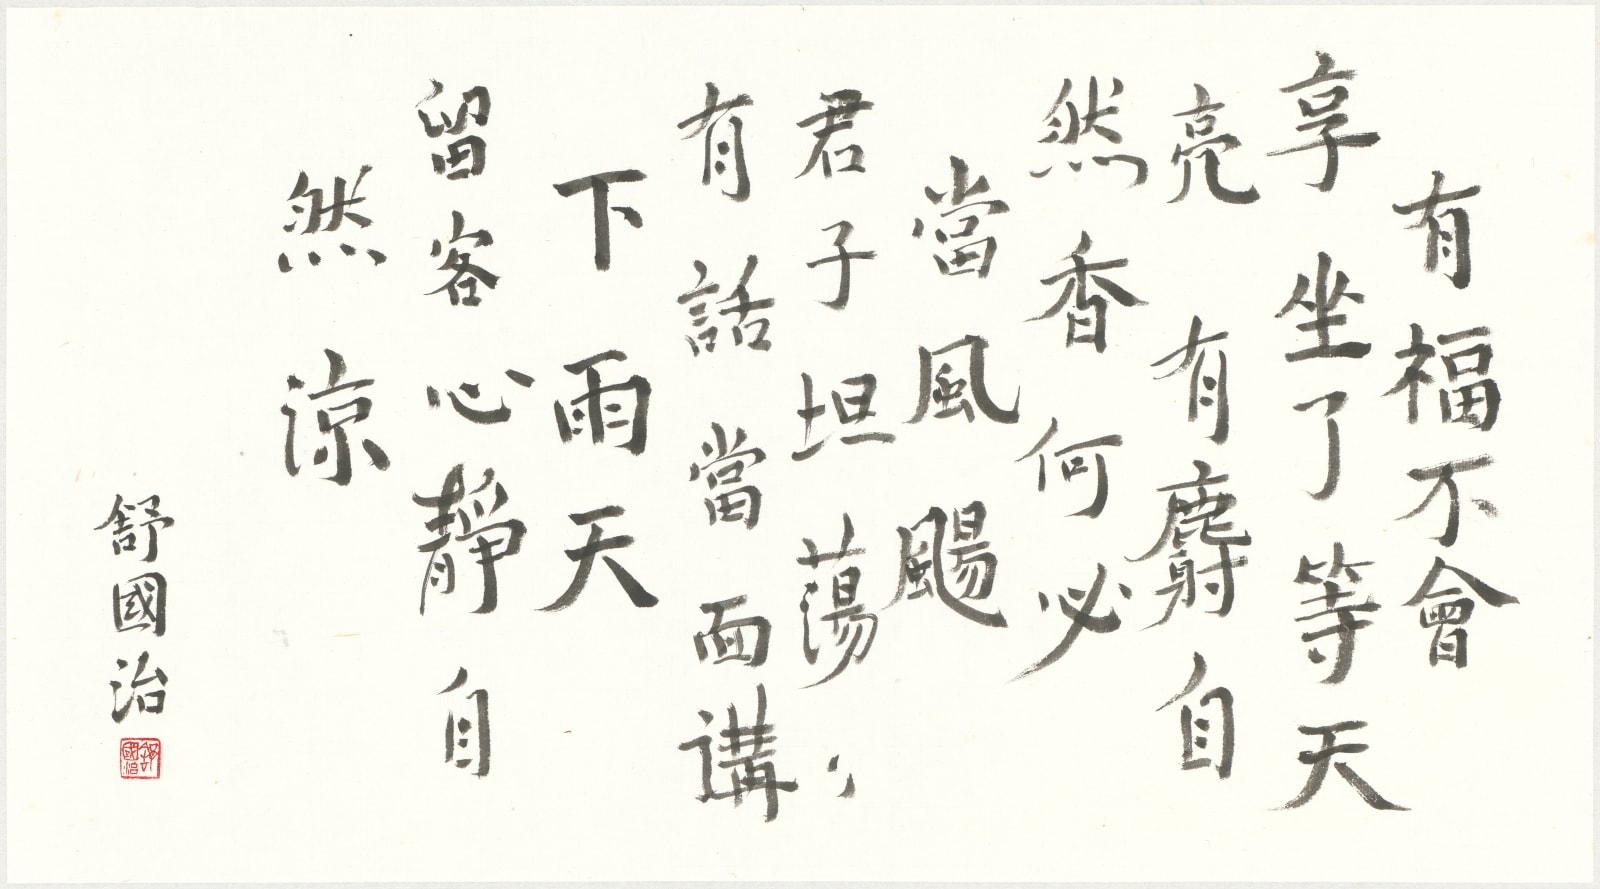 有福不會
享坐了等天
亮有麝自
然香何必
當風颺
君子坦蕩〻
有話當面講
下雨天
留客心靜自
然涼
舒國治
舒國治